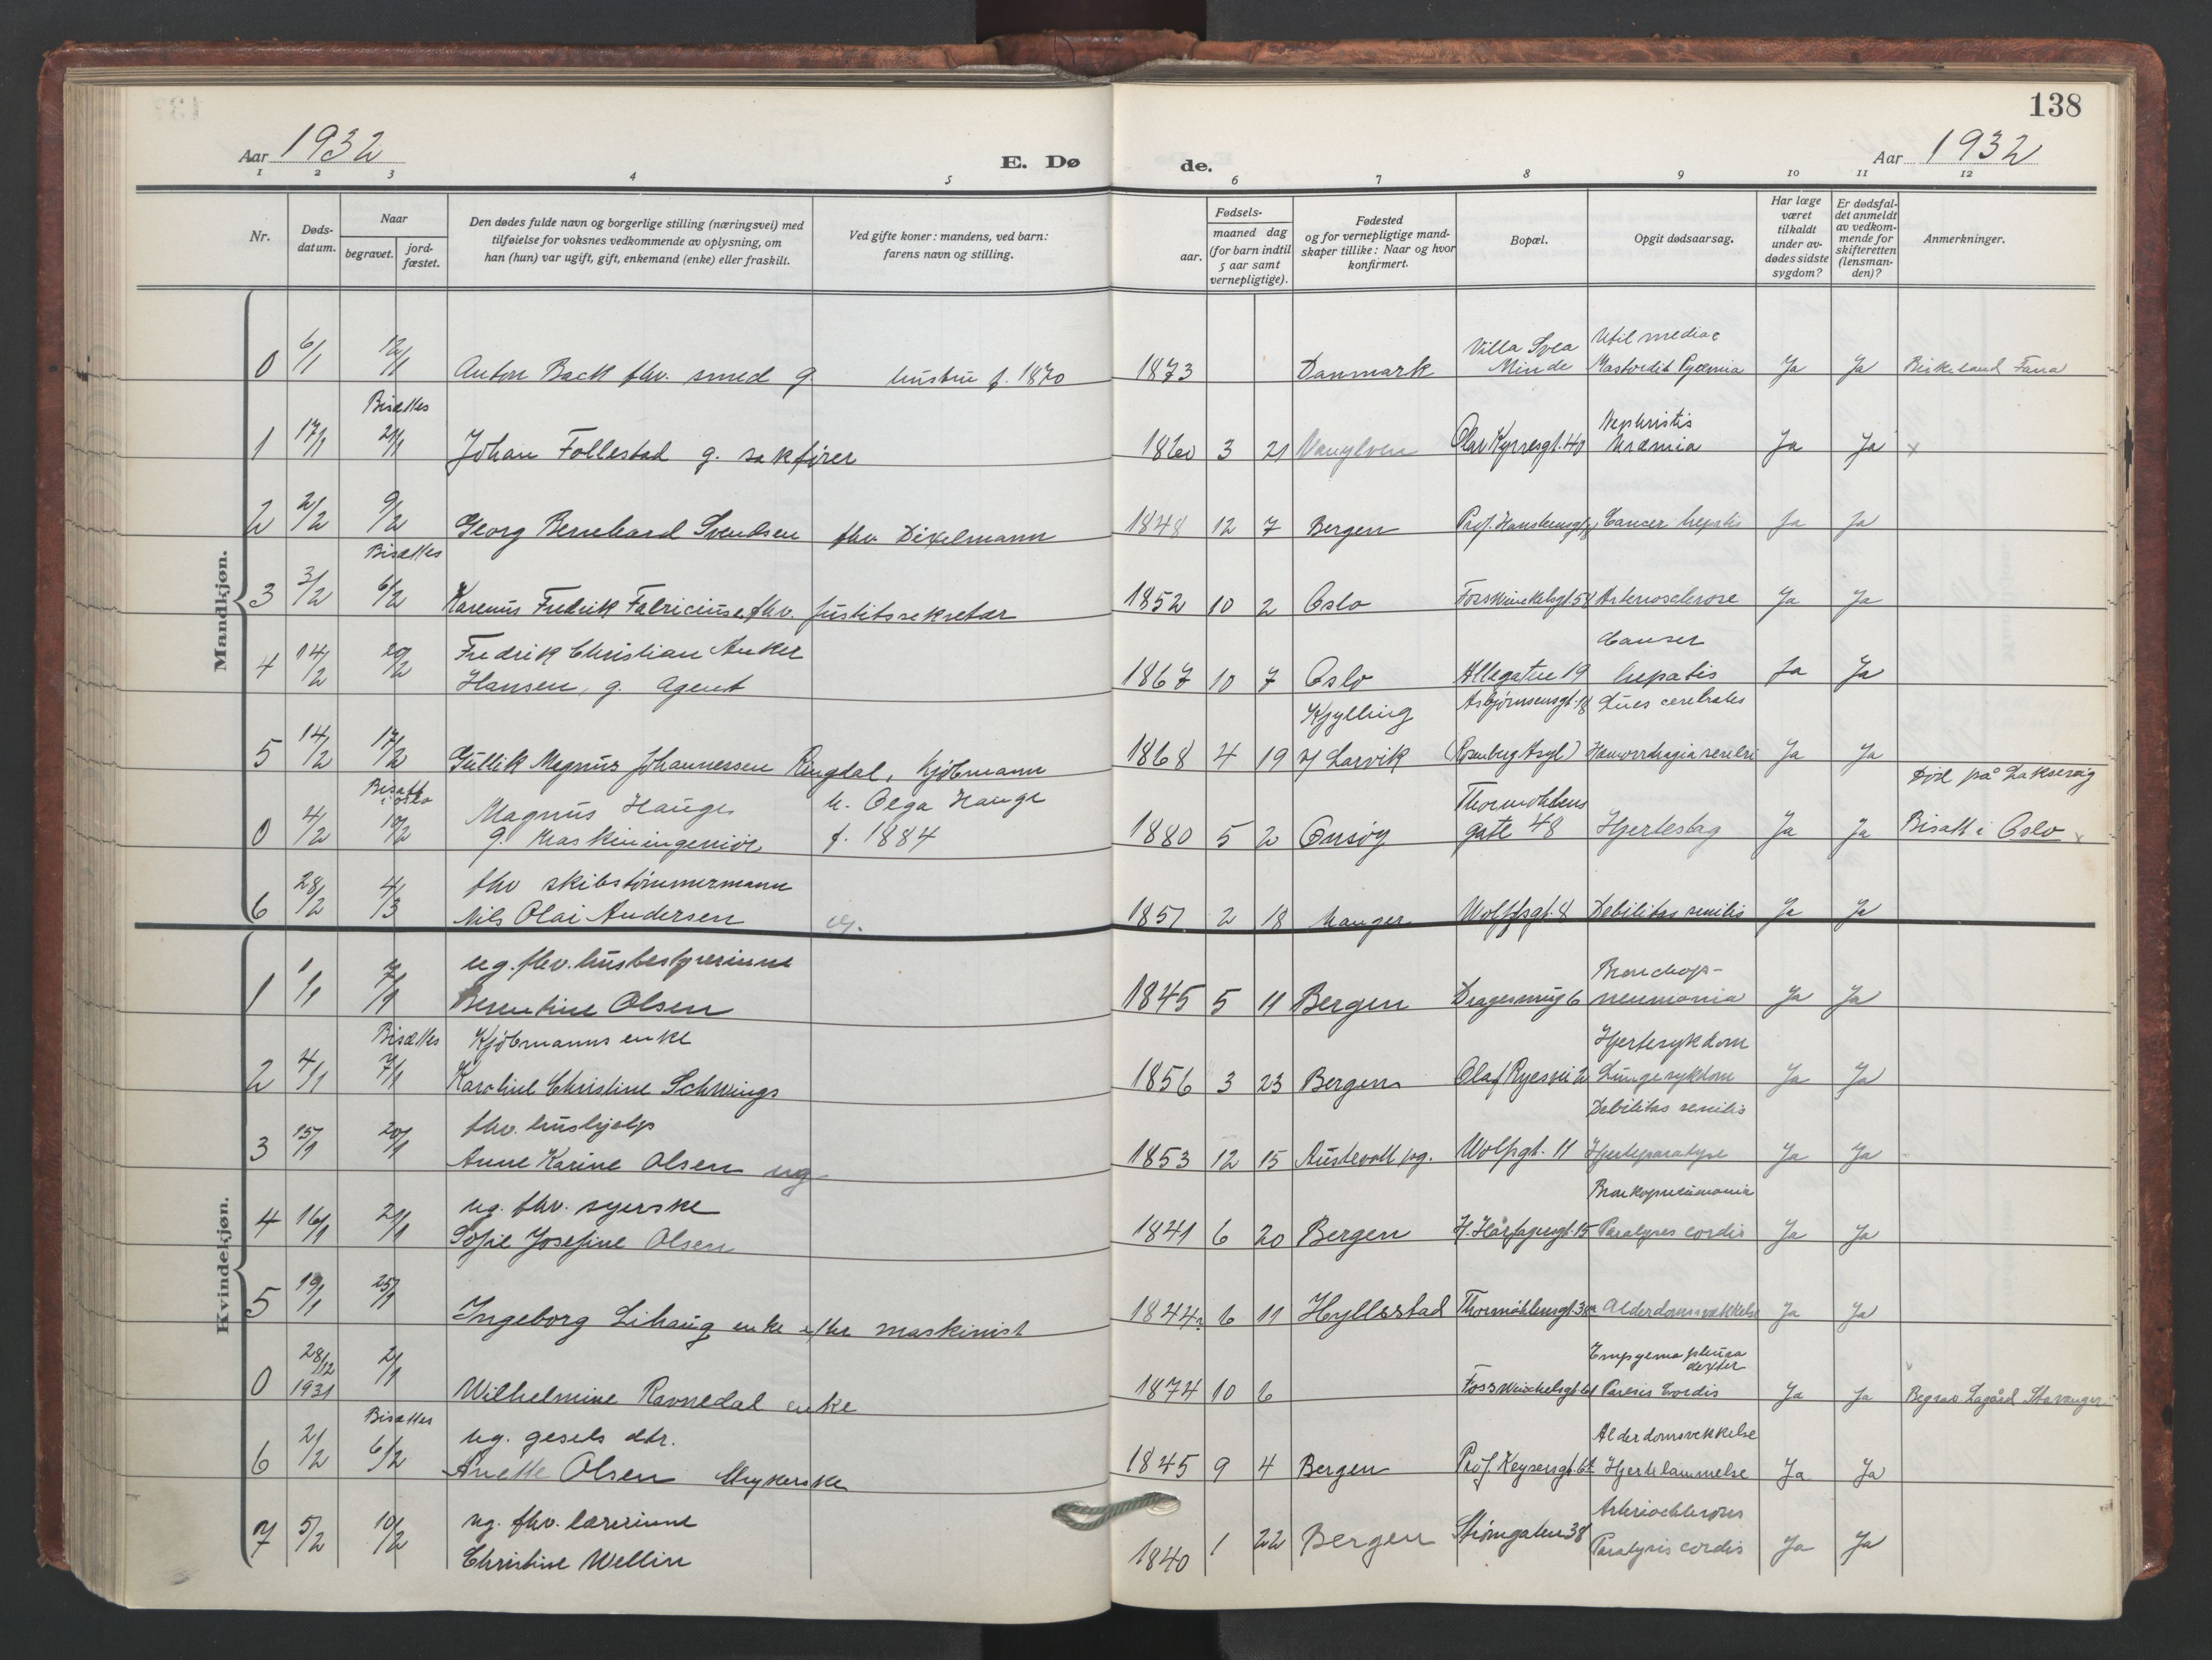 138
Aar 1932
E. Døde.
Aar 1932
1 2 3 4 5 6 7 8 9 10 11 12
Nr.
Døds-
datum.
Naar
begravet.
jord-
fæstet.
Den dødes fulde navn og borgerlige stilling (næringsvei) med
tilføielse for voksnes vedkommende av oplysning, om
han (hun) var ugift, gift, enkemand (enke) eller fraskilt.
Ved gifte koner: mandens, ved barn:
farens navn og stilling.
Fødsels-
aar. maaned dag
(for barn indtil
5 aar samt
vernepligtige).
Fødested
og for vernepligtige mand-
skaper tillike: Naar og hvor
konfirmert.
Bopæl.
Opgit dødsaarsag.
Har læge
været
tilkaldt
under av-
dødes sidste
sygdom?
Er dødsfal-
det anmeldt
av vedkom-
mende for
skifteretten
(lensman-
den)?
Anmerkninger.
Mandkjøn.
Villa Svea
0 6/1 12/1 Anton Back fhv. smed g hustru f. 1870 1873 Danmark Minde Mastoidit Pyæmia Ja Ja Birkeland Fana
Bisættes Nephritis
1 17/1 21/1 Johan Follestad g. sakfører 1860 3 21 Vanylven Olav Kyrresgt. 40 Uræmia Ja Ja x
2 2/2 9/2 Georg Bernhard Svendsen fhv. Dixelmann 1848 12 7 Bergen Cancer hepatis Ja Ja
Bisættes
3 3/2 6/2 Karenus Fredrik Fabricius fhv. Justitssekretær 1852 10 2 Oslo Fosswinckelsgt. 58 Arteriosclerose Ja Ja
Fredrik Christian Anker Canser
4 14/2 20/2 Hansen, g. Agent 1867 10 7 Oslo Allegaten 19 hepatis Ja Ja
Kjylling Asbjørnsensgt. 18 Lues cerebrates
5 14/2 17/2 Gullik Magnus Johannessen Ringdal, kjøbmann 1868 4 19 Larvik (Rosenberg Asyl) Ja Ja
Bisatt i Oslo Magnus Hauge h. Olga Hauge Thormøhlens Død på Laksevåg
0 4/2 g. Maskiningeniør f. 1884 1880 5 2 Onsøy gate 48 Hjerteslag Ja Ja Bisatt i Oslo x
fhv skibstømmermann
6 28/2 4/3 Nils Olai Andersen 1851 2 18 Manger Wolffsgt. 8 Debilitas senilis Ja Ja
Kvindekjøn.
ug. fhv. husbestyrerinne Bronchop-
1 1/1 7/1 Berentine Olsen 1845 5 11 Bergen Dragesmug 6 neumonia Ja Ja
Bisættes Kjøbmanns enke Hjertesykdom
2 4/1 7/1 Karoline Christine Schwings 1856 3 23 Bergen Olaf Ryesvei 2 Lungesykdom Ja Ja
fhv. hushjelp Debilitas senilis
3 15/1 20/1 Anne Karine Olsen ug 1853 12 15 Austevoll pg. Wolfsgt. 11 Hjerteparalyse Ja Ja
ug. fhv. syerske Bronkopneumonia
4 16/1 21/1 Sofie Josefine Olsen 1841 6 20 Bergen H. Hårfagresgt. 15 Paralyses cordis Ja Ja
5 19/1 25/1 Ingeborg Lihaug enke efter maskinist 1844 6 11 Hyllestad Thormøhlensgt. 38a Alderdomssvekkelse Ja Ja
28/12 Empyema pleura dexter
0 1931 2/1 Wilhelmine Ravnedal enke 1874 10 6 Fosswinckelsgt. 61 Paresis Cordis Ja Ja Begrav. Lagård Stavanger
Bisættes ug. gesels dtr. Alderdomsvekkelse
6 2/2 6/2 Anette Olsen Strykerske 1845 9 4 Bergen Prof. Keysersgt. Hjertelammelse Ja Ja
ug. fhv. lærerinne
7 5/2 10/2 Christine Wellin 1840 1 22 Bergen Strømgaten 38 Paralysis cordis Ja Ja